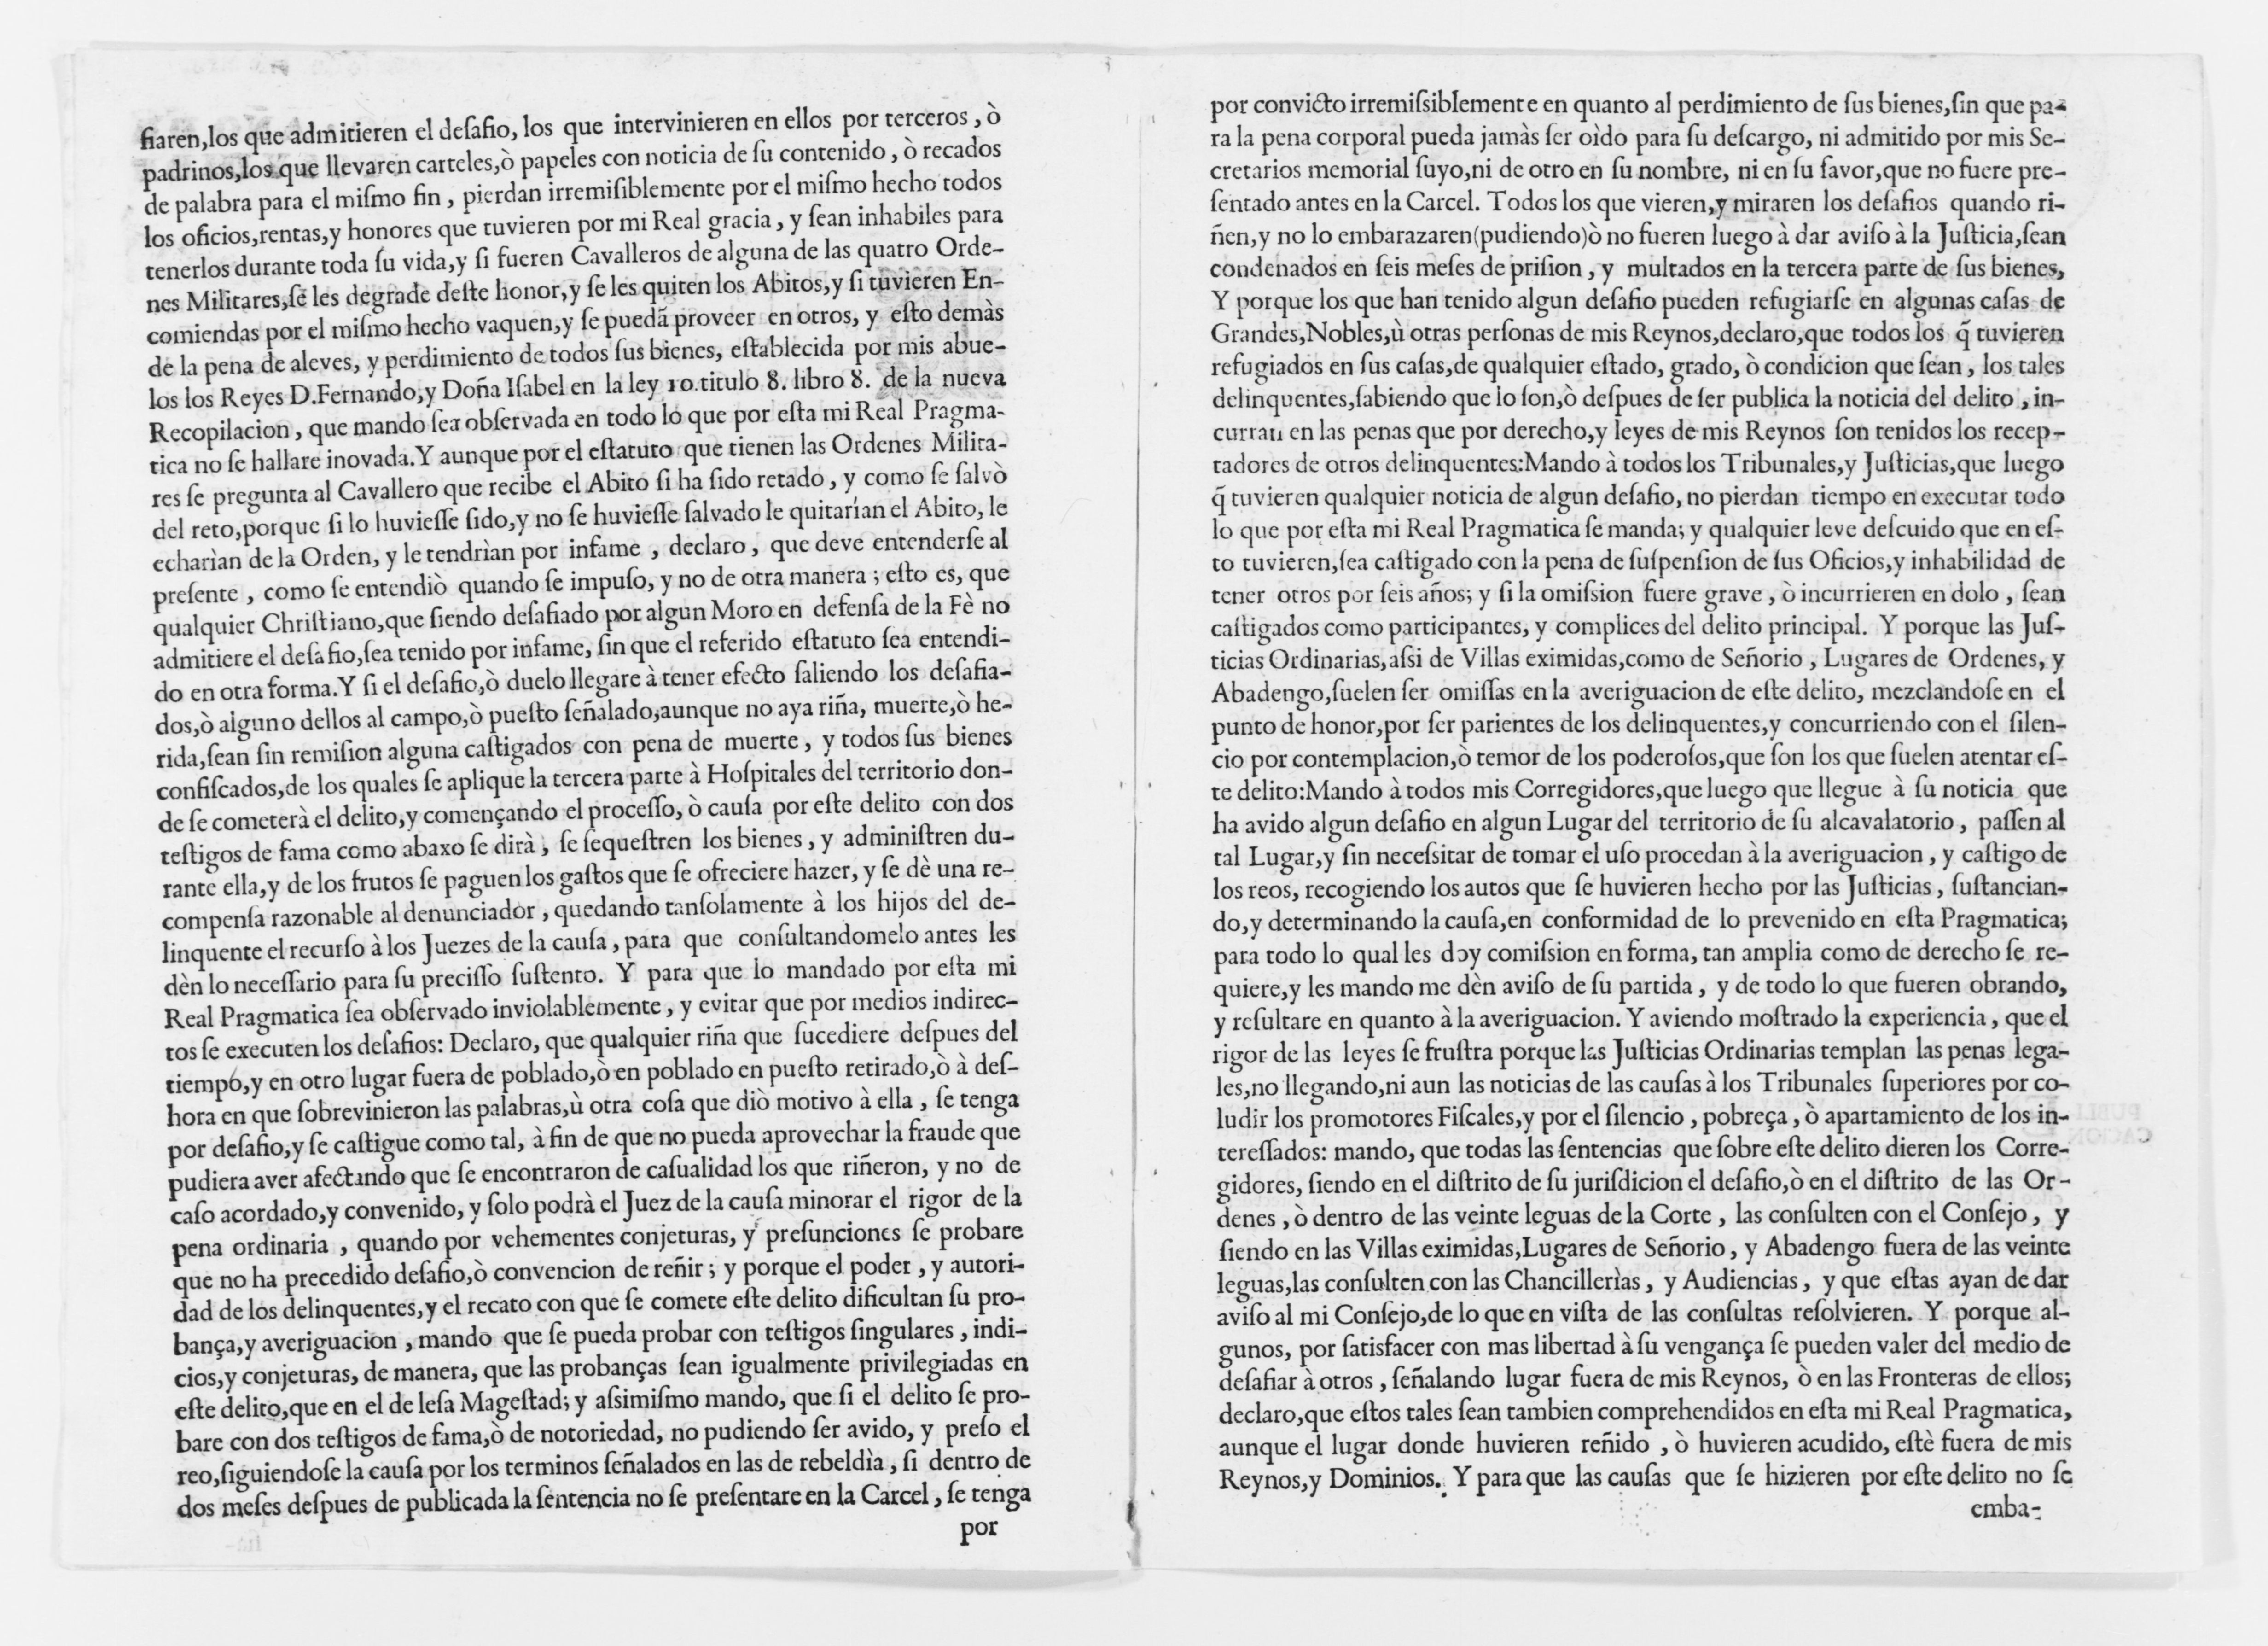 fiaren,los que admitieren el deſafio, los que intervinieren en ellos por terceros, ò
padrinos,los que llevaren carteles,ò papeles con noticia de ſu contenido, ò recados
de palabra para el miſmo fin, pierdan irremiſiblemente por el miſmo hecho todos
los oficios,rentas,y honores que tuvieren por mi Real gracia, y ſean inhabiles para
tenerlos durante toda ſu vida,y ſi fueren Cavalleros de alguna de las quatro Orde-
nes Militares,ſe les degrade deſte honor,y ſe les quiten los Abitos,y ſi tuvieren En-
comiendas por el miſmo hecho vaquen,y ſe puedã proveer en otros, y eſto demàs
de la pena de aleves, y perdimiento de todos ſus bienes, eſtablecida por mis abue-
los los Reyes D.Fernando,y Doña Iſabel en la ley 10.titulo 8. libro 8. de la nueva
Recopilacion, que mando ſea obſervada en todo lo que por eſta mi Real Pragma-
tica no ſe hallare inovada.Y aunque por el eſtatuto que tienen las Ordenes Milita-
res ſe pregunta al Cavallero que recibe el Abito ſi ha ſido retado, y como ſe ſalvò
del reto,porque ſi lo huvieſſe ſido,y no ſe huvieſſe ſalvado le quitarían el Abito, le
echarìan de la Orden, y le tendrìan por infame, declaro, que deve entenderſe al
preſente, como ſe entendiò quando ſe impuſo, y no de otra manera; eſto es, que
qualquier Chriſtiano,que ſiendo deſafiado por algun Moro en defenſa de la Fè no
admitiere el deſafio,ſea tenido por infame, ſin que el referido eſtatuto ſea entendi-
do en otra forma.Y ſi el deſafio,ò duelo llegare à tener efecto ſaliendo los deſafia-
dos,ò alguno dellos al campo,ò pueſto ſeñalado,aunque no aya riña, muerte,ò he-
rida,ſean ſin remiſion alguna caſtigados con pena de muerte, y todos ſus bienes
confiſcados,de los quales ſe aplique la tercera parte à Hoſpitales del territorio don-
de ſe cometerà el delito,y començando el proceſſo, ò cauſa por eſte delito con dos
teſtigos de fama como abaxo ſe dirà, ſe ſequeſtren los bienes, y adminiſtren du-
rante ella,y de los frutos ſe paguen los gaſtos que ſe ofreciere hazer, y ſe dè una re-
compenſa razonable al denunciador, quedando tanſolamente à los hijos del de-
linquente el recurſo à los Juezes de la cauſa, para que conſultandomelo antes les
dèn lo neceſſario para ſu preciſſo ſuſtento. Y para que lo mandado por eſta mi
Real Pragmatica ſea obſervado inviolablemente, y evitar que por medios indirec-
tos ſe executen los deſafios: Declaro, que qualquier riña que ſucediere deſpues del
tiempo,y en otro lugar fuera de poblado,ò en poblado en pueſto retirado,ò à deſ-
hora en que ſobrevinieron las palabras,ù otra coſa que diò motivo à ella, ſe tenga
por deſafio,y ſe caſtigue como tal, à fin de que no pueda aprovechar la fraude que
pudiera aver afectando que ſe encontraron de caſualidad los que riñeron, y no de
caſo acordado,y convenido, y ſolo podrà el Juez de la cauſa minorar el rigor de la
pena ordinaria, quando por vehementes conjeturas, y preſunciones ſe probare
que no ha precedido deſafio,ò convencion de reñir; y porque el poder, y autori-
dad de los delinquentes,y el recato con que ſe comete eſte delito dificultan ſu pro-
bança,y averiguacion, mando que ſe pueda probar con teſtigos ſingulares, indi-
cios,y conjeturas, de manera, que las probanças ſean igualmente privilegiadas en
eſte delito,que en el de leſa Mageſtad; y aſsimiſmo mando, que ſi el delito ſe pro-
bare con dos teſtigos de fama,ò de notoriedad, no pudiendo ſer avido, y preſo el
reo,ſiguiendoſe la cauſa por los terminos ſeñalados en las de rebeldìa, ſi dentro de
dos meſes deſpues de publicada la ſentencia no ſe preſentare en la Carcel, ſe tenga
por
por convicto irremiſsiblemente en quanto al perdimiento de ſus bienes,ſin que pa-
ra la pena corporal pueda jamàs ſer oìdo para ſu deſcargo, ni admitido por mis Se-
cretarios memorial ſuyo,ni de otro en ſu nombre, ni en ſu favor,que no fuere pre-
ſentado antes en la Carcel. Todos los que vieren,y miraren los deſafios quando ri-
ñen,y no lo embarazaren(pudiendo)ò no fueren luego à dar aviſo à la Juſticia,ſean
condenados en ſeis meſes de priſion, y multados en la tercera parte de ſus bienes,
Y porque los que han tenido algun deſafio pueden refugiarſe en algunas caſas de
Grandes,Nobles,ù otras perſonas de mis Reynos,declaro,que todos los q̃ tuvieren
refugiados en ſus caſas,de qualquier eſtado, grado, ò condicion que ſean, los tales
delinquentes,ſabiendo que lo ſon,ò deſpues de ſer publica la noticia del delito, in-
curran en las penas que por derecho,y leyes de mis Reynos ſon tenidos los recep-
tadores de otros delinquentes:Mando à todos los Tribunales,y Juſticias,que luego
q̃ tuvieren qualquier noticia de algun deſafio, no pierdan tiempo en executar todo
lo que por eſta mi Real Pragmatica ſe manda; y qualquier leve deſcuido que en eſ-
to tuvieren,ſea caſtigado con la pena de ſuſpenſion de ſus Oficios,y inhabilidad de
tener otros por ſeis años; y ſi la omiſsion fuere grave, ò incurrieren en dolo, ſean
caſtigados como participantes, y complices del delito principal. Y porque las Juſ-
ticias Ordinarias,aſsi de Villas eximidas,como de Señorio, Lugares de Ordenes, y
Abadengo,ſuelen ſer omiſſas en la averiguacion de eſte delito, mezclandoſe en el
punto de honor,por ſer parientes de los delinquentes,y concurriendo con el ſilen-
cio por contemplacion,ò temor de los poderoſos,que ſon los que ſuelen atentar eſ-
te delito:Mando à todos mis Corregidores,que luego que llegue à ſu noticia que
ha avido algun deſafio en algun Lugar del territorio de ſu alcavalatorio, paſſen al
tal Lugar,y ſin neceſsitar de tomar el uſo procedan à la averiguacion, y caſtigo de
los reos, recogiendo los autos que ſe huvieren hecho por las Juſticias, ſuſtancian-
do,y determinando la cauſa,en conformidad de lo prevenido en eſta Pragmatica;
para todo lo qual les doy comiſsion en forma, tan amplia como de derecho ſe re-
quiere,y les mando me dèn aviſo de ſu partida, y de todo lo que fueren obrando,
y reſultare en quanto à la averiguacion. Y aviendo moſtrado la experiencia, que el
rigor de las leyes ſe fruſtra porque las Juſticias Ordinarias templan las penas lega-
les,no llegando,ni aun las noticias de las cauſas à los Tribunales ſuperiores por co-
ludir los promotores Fiſcales,y por el ſilencio, pobreça, ò apartamiento de los in-
tereſſados: mando, que todas las ſentencias que ſobre eſte delito dieren los Corre-
gidores, ſiendo en el diſtrito de ſu juriſdicion el deſafio,ò en el diſtrito de las Or-
denes, ò dentro de las veinte leguas de la Corte, las conſulten con el Conſejo, y
ſiendo en las Villas eximidas,Lugares de Señorio, y Abadengo fuera de las veinte
leguas,las conſulten con las Chancillerìas, y Audiencias, y que eſtas ayan de dar
aviſo al mi Conſejo,de lo que en viſta de las conſultas reſolvieren. Y porque al-
gunos, por ſatisfacer con mas libertad à ſu vengança ſe pueden valer del medio de
deſafiar à otros, ſeñalando lugar fuera de mis Reynos, ò en las Fronteras de ellos;
declaro,que eſtos tales ſean tambien comprehendidos en eſta mi Real Pragmatica,
aunque el lugar donde huvieren reñido, ò huvieren acudido, eſtè fuera de mis
Reynos,y Dominios. Y para que las cauſas que ſe hizieren por eſte delito no ſe
emba-